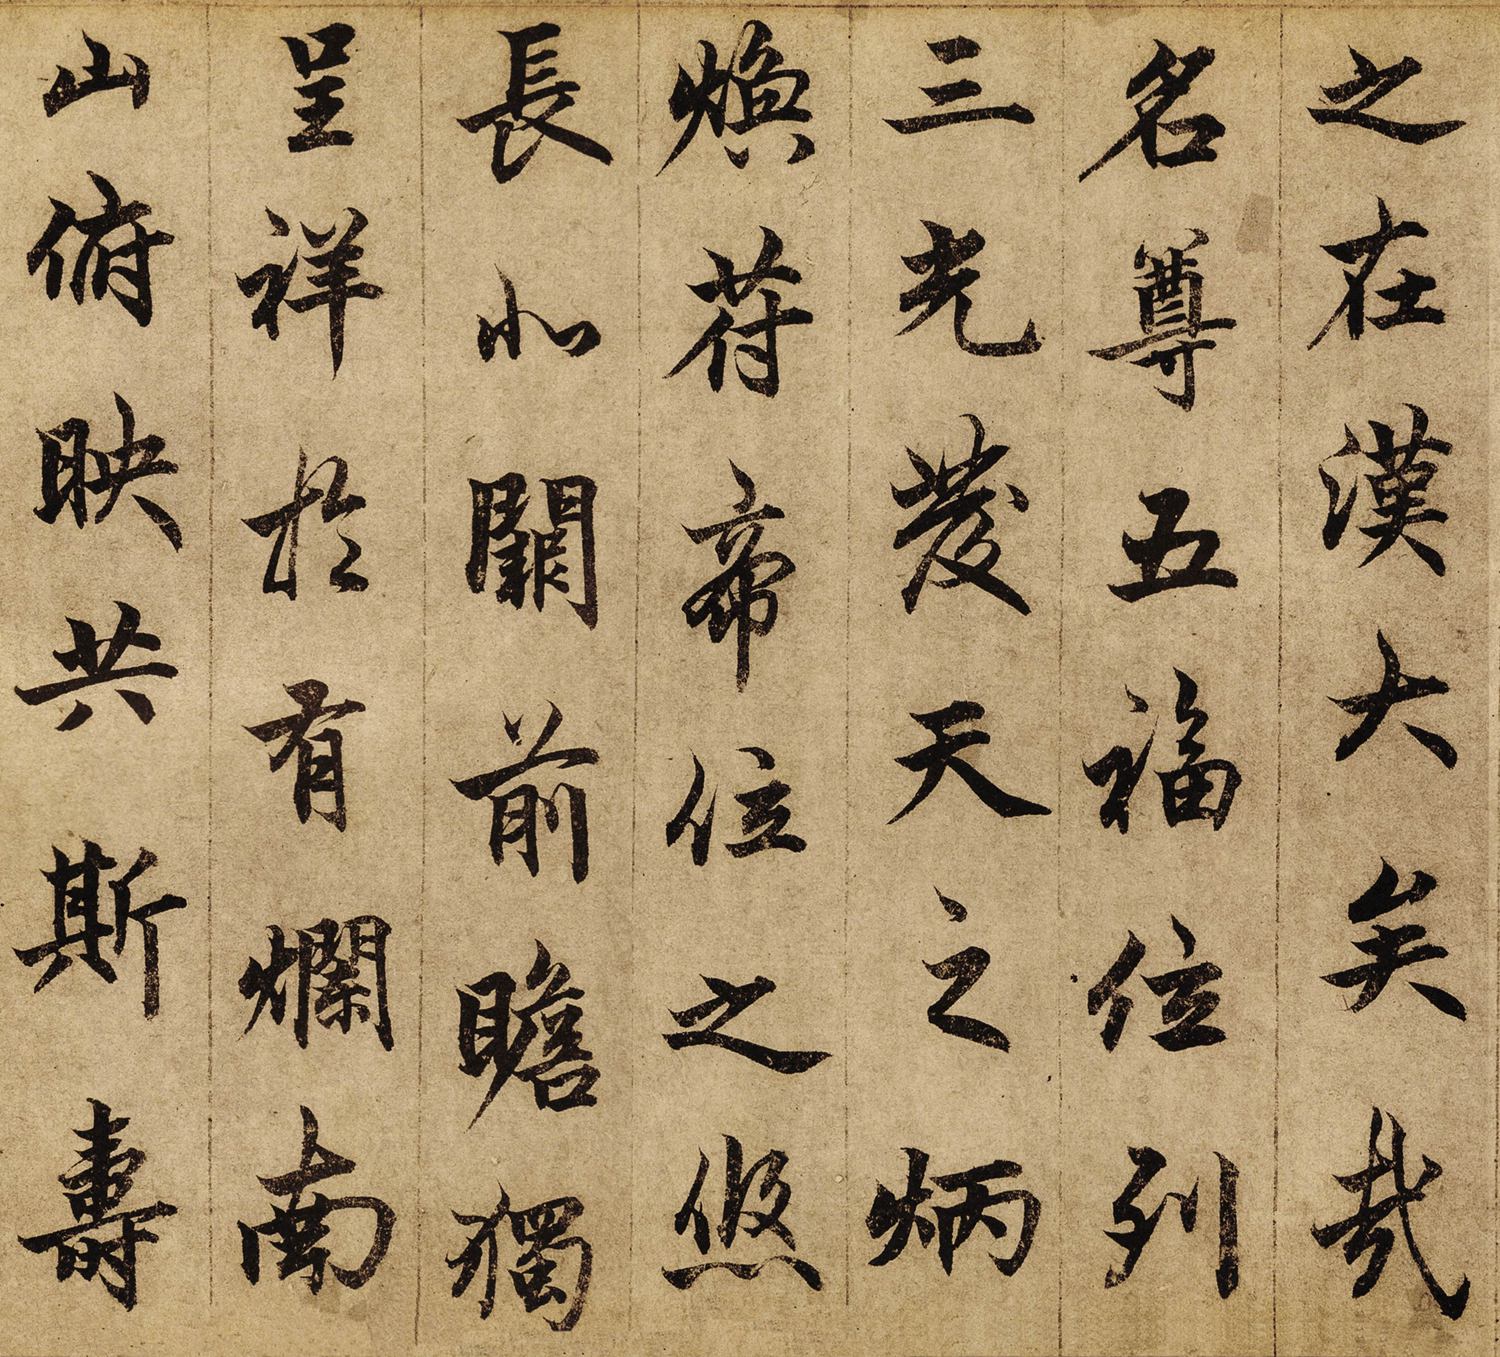 之在漢大矣哉
名尊五福位列
三光發天之炳
煥荷帝位之悠
長北闕前瞻獨
呈祥於有爛南
山俯映共斯壽